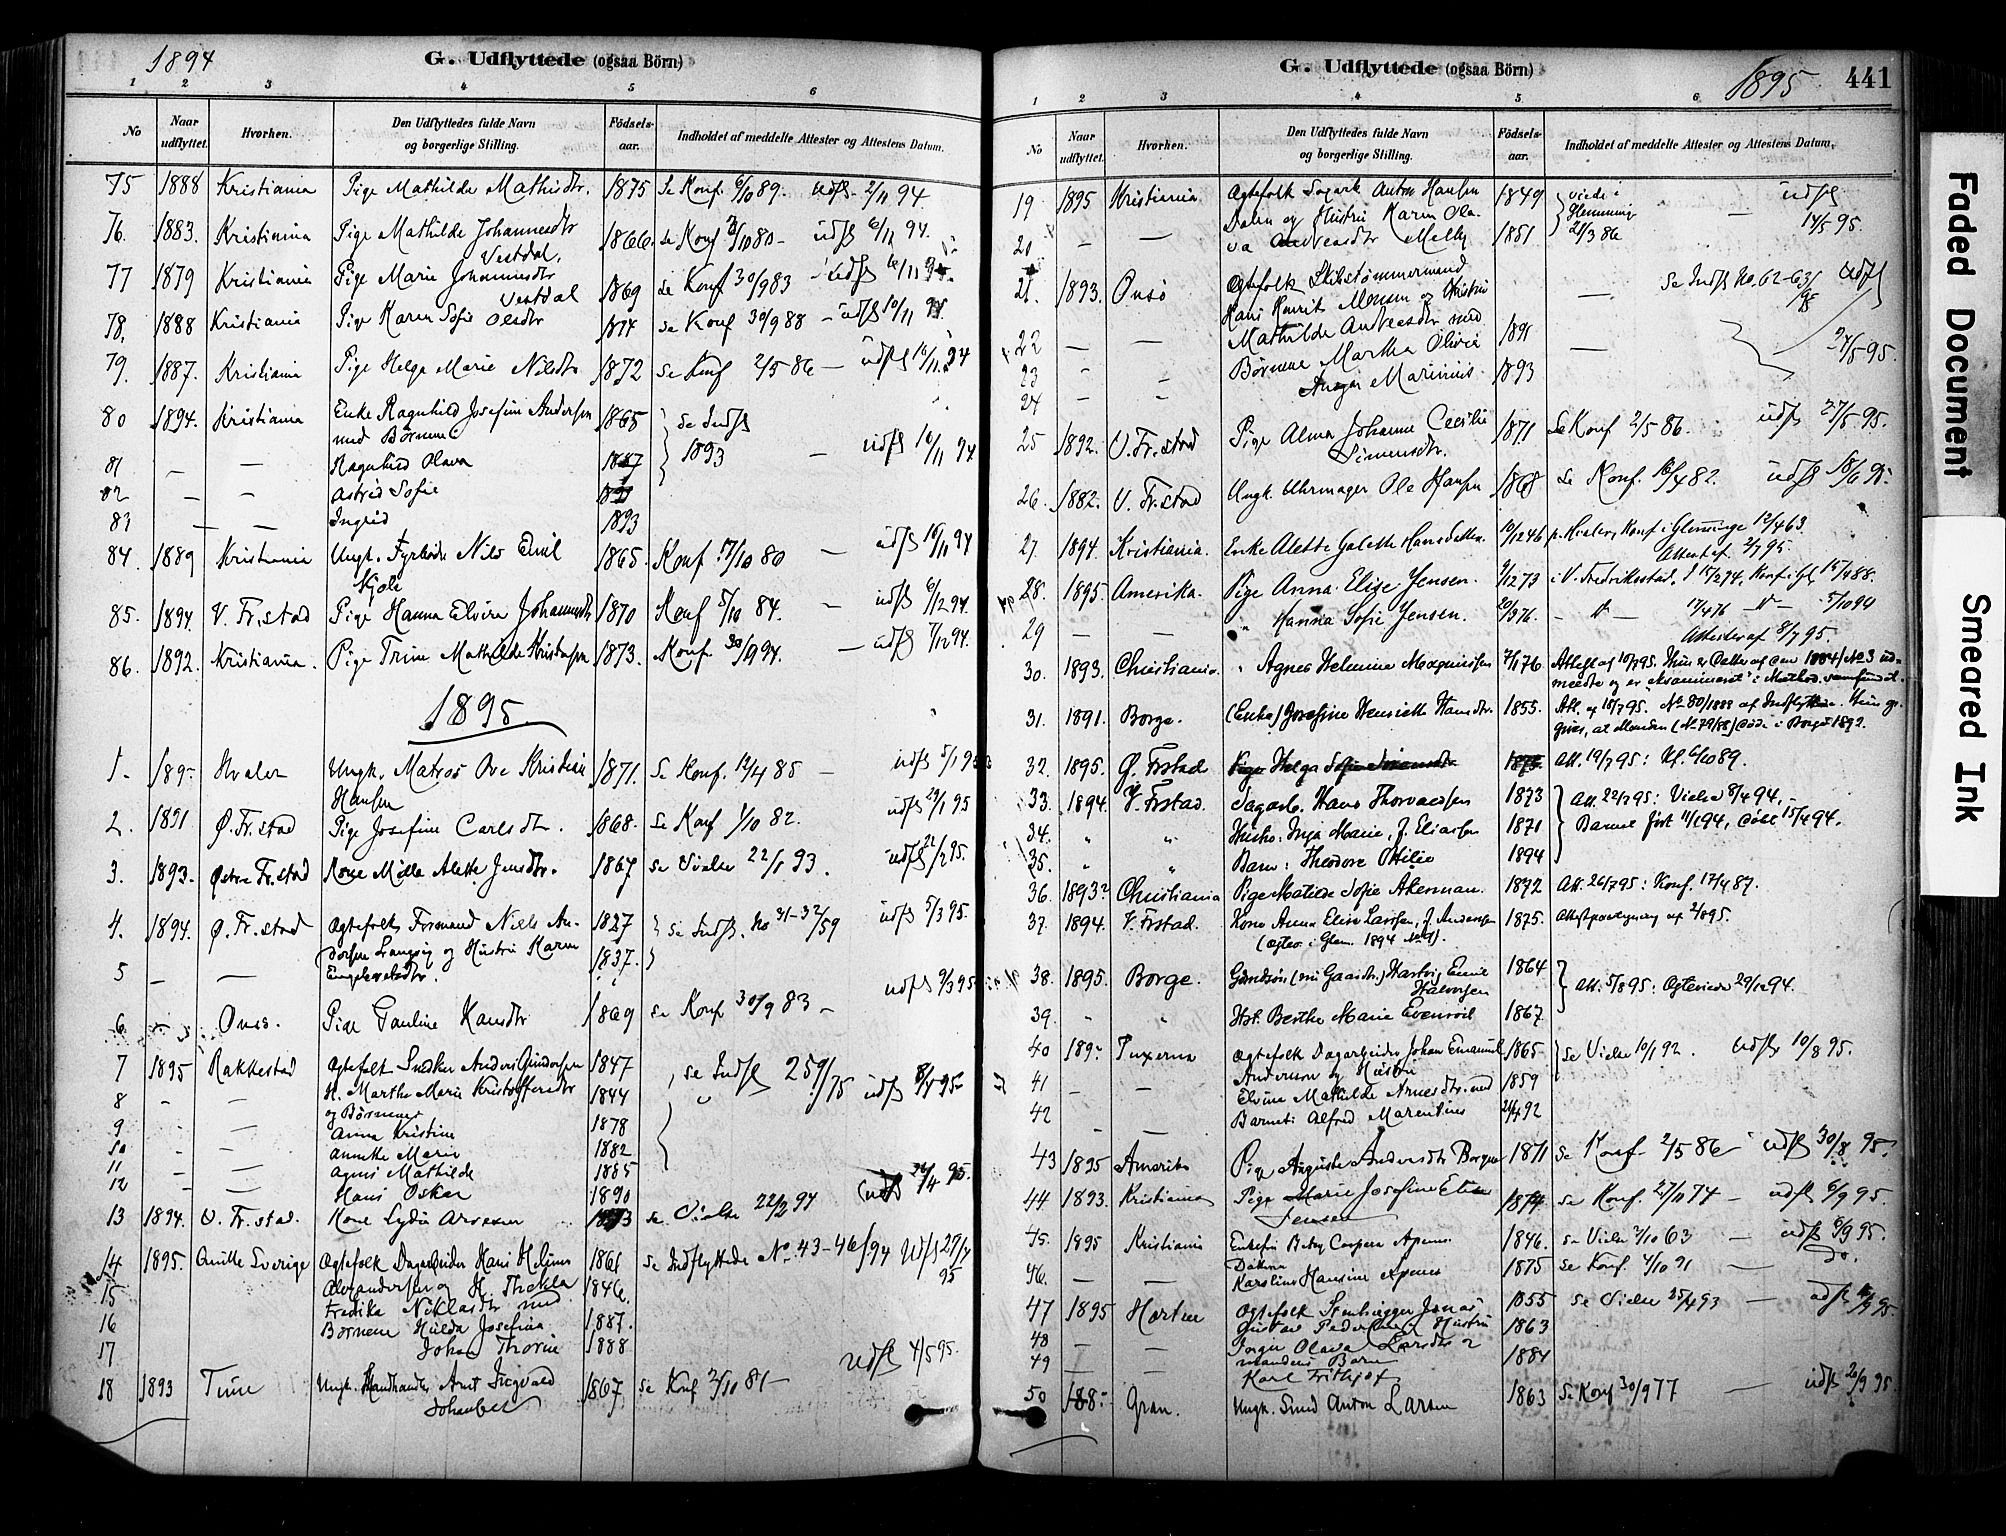 1894
G. Udflyttede (ogsaa Börn)
1 2 3 4 5 6
No Naar udflyttet. Hvorhen. Den Udflyttedes fulde Navn og borgerlige Stilling. Födsels-aar. Indholdet af meddelte Attester og Attestens Datum.
75 1888 Kristiania Pige Mathilde Mathisdtr. 1875 Se Konf. 6/10 89. Udfl. 2/11 94
76. 1883. Kristiania Pige Mathilde Johannesdtr 1866. se Konf 3/10 80 – udfl 6/11 94.
Vestdal.
77 1879 Kristiania Pige Marie Johannesdtr 1869 se Konf 30/9 83 – udfl
Vestdal
78. 1888 Kristiania Pige Karen Sofie Olsdtr 1874 se Konf 30/9 88 – udfl 10/11
79. 1887. Kristiania Pige Helga Marie Nilsdtr 1872 se Konf 2/5 86 – udfl 16/11 94
80 1894. Kristiania Enke Ragnhild Josefine Andersen 1865 se Indfl
med Børnene 1893 – udfl 16/11 94
81 – – Ragnhild Olava 1887
82 – – Astrid Sofie
83 – – Ingrid 1893
84. 1889 Kristiania Ungk. Fyrbøder Nils Emil 1865. Konf 17/10 80 – udfl 16/11 94
85. 1894. V. Fr.stad Pige Hanna Elvire Johannesdtr 1870 Konf 5/10 84. – udfl 6/12 94.
86. 1892. Kristiania. Pige Trine Mathilde Kristensen 1873. Konf. – udfl 7/12 94.
1895.
1. 189- Hvaler Ungk. Matros Ove Kristian 1871. Se Konf. 12/4 85 – udfl 5/1 95
Hansen
2. 1891 Ø. Fr.stad Pige Josefine Carlsdtr. 1868. Se Konf 1/10 82. udfl 29/1 95
3. 1893. Østre Fr.stad Kone Alette Jensdtr. 1867 se Vielse 22/1 93. udfl 22/2 95.
4. 1894. Ø. Fr.stad Ægtefolk Formand Niels An- 1827 se Indfl. No 31–32/59 udfl 5/3 95.
dersen og Hustru Karen 1837.
5 – – Engebretsdtr.
6 – Onsø. Pige Pauline Hansdtr 1869 se Konf 30/9 83 – udfl 9/3 95
7 1895 Rakkestad Ægtefolk Snedker Anders Gundersen 1847 se Indfl 259/75 udfl 8/4 95
8 – – H. Marthe Marie Kristoffersdtr 1844
og Børnene
9 – Anna Kristine 1878
10 – – Annette Marie 1882
11 – – Agnes Mathilde 1885
12 – – Hans Oskar 1890
13 1894. V. Fr.stad. Kone Lydia Arnesen se Vielse 22/2 94 Udfl 24/4 95.
14 1895. Sverige Ægtefolk Dagarbeider Hans Helmer 1861 se Indflyttede No. 43–46/94 Udfl 27/4 95
15 Alexandersen og H. Thekla 1846.
Fredrika Niklasdtr med
16 Børnene Hilda Josefina 1887.
17 Johan Thorin 1888
18 1893 Tune Ungk. Handlende Arnt Sigvald 1867 se Konf 2/10 81 – Udfl 4/5 95.
Johansen
G. Udflyttede (ogsaa Börn)
1895 441
1 2 3 4 5 6
No Naar udflyttet. Hvorhen. Den Udflyttedes fulde Navn og borgerlige Stilling. Födsels-aar. Indholdet af meddelte Attester og Attestens Datum.
19 1895 Kristiania Ægtefolk Sagarb. Anton Hansen 1849 viede i udfl
Dalen og Hustru Karen Ola- Glemminge – 14/5 95.
20 – – va Andreasdtr Melby 1851 21/3 86
21. 1893. Onsø Ægtefolk Skibstømmermand – se Indfl No. 62–63/ udfl
Hans Henrik Monsen og Hustru
22 – – Mathilde Andreasdtr med 1891 – 27/5 95.
23 – – Børnene Martha Olivia
Ansgar Marinius 1893
24 – –
25 1892. V. Fr.stad Pige Alma Johanne Cecilie 1871 Se Konf 2/5 86. udfl 27/5 95.
Simensdtr.
26. 1882. V. Fr.stad Ungk. Uhrmager Ole Hansen 1868 Se Konf. 16/4 82. udfl 18/6 95.
27. 1894. Kristiania. Enke Alette Galette Hansdatter. 10/12 46 p. Hvaler, Konf i Glemminge 12/4 63.
Attest af 2/7 95.
28. 1895. Amerika. Pige Anna Elise Jensen. 9/12 73 i V. Fredriksstad, Konf i Gl. 15/4 88.
29 – – " Hanna Sofie Jensen. 20/3 76. 17/4 76 5/10 94
Attester af 8/7 95.
30. 1893. Christiania. " Agnes Helmine Magnussen 7/1 76 Attest af 10/7 95. Hun er Datter af den 1884/No 3 ud-
meldte og er
31. 1891. Borge. (Enke) Josefine Henriette Hansdtr. 1855. Att. af 18/7 95. No 80/1888 af Indflyttede. Hun op-
giver, at Manden (No 79/88) døde i Borge 1892.
32. 1895. Ø. Frstad Pige Helga Sofie 1873 Att. 19/7 95: Kf. 6/10 89.
33. 1894. V. Frstad. Sagarb. Hans Thorvaldsen 1873 Att. 22/7 95: Vielse 8/4 94.
34. " " Hustru: Inga Marie, f. Eliassen 1871 Barnet født 11/1 94, døbt 15/4 94.
35. " Barn: Theodore Ottilie 1894
36. 1893? Christiania Pige Matilde Sofie Akerman. 1872 Att. 26/7 95: Konf. 17/4 87.
37. 1894. V. Frstad. Kone Anna Elise Larsen, f. Andersen 1875. Attestpaategning af 2/8 95.
(Ægtev. i Glem. 1894 No 9).
38. 1895. Borge. Hartvig Emil 1864 Att. 5/8 95: Ægteviede 29/12 94.
Halvorsen
39. " " Hst. Berthe Marie Evensdtr 1867.
40 189- Ægtefolk Dagarbeider Johan Emanuel 1865 se Vielse 10/1 92. Udfl 10/8 95.
41 – – Andersen og Hustru 1859
Elvine Mathilde Arnesdtr. med
42 – – Barnet: Alfred Marentius 92
43 1895 Amerika Pige Augusta Andersdtr Borgen 1871 se Konf. 2/5 86 udfl 30/8 95.
44 1893. Kristiania Pige Marie Josefine Elise 1874 se Konf. 27/10 74 – udfl 6/9 95
Jensen
45. 1895 Kristiania Enkefru Betzy Caspara Apenes 1846. se Vielse 2/10 63 – udfl 6/9 95.
46. – – Datteren Karoline Hansine Apenes 1875 se Konf. 4/10 91 – Do.
47 1895 Horten Ægtefolk Stenhugger Jonas 1855 se Vielse 25/4 93 – udfl
48 Gustav Pedersen, Hustru 1863
Inger Olava Larsdtr
49 – – mandens Barn 1884
Karl Frithjof
50 188- Gran. Ungk. Smed Anton Larsen 1863 Se Konf 30/9 77 – udfl 20/9 95
Faded Document
Smeared Ink